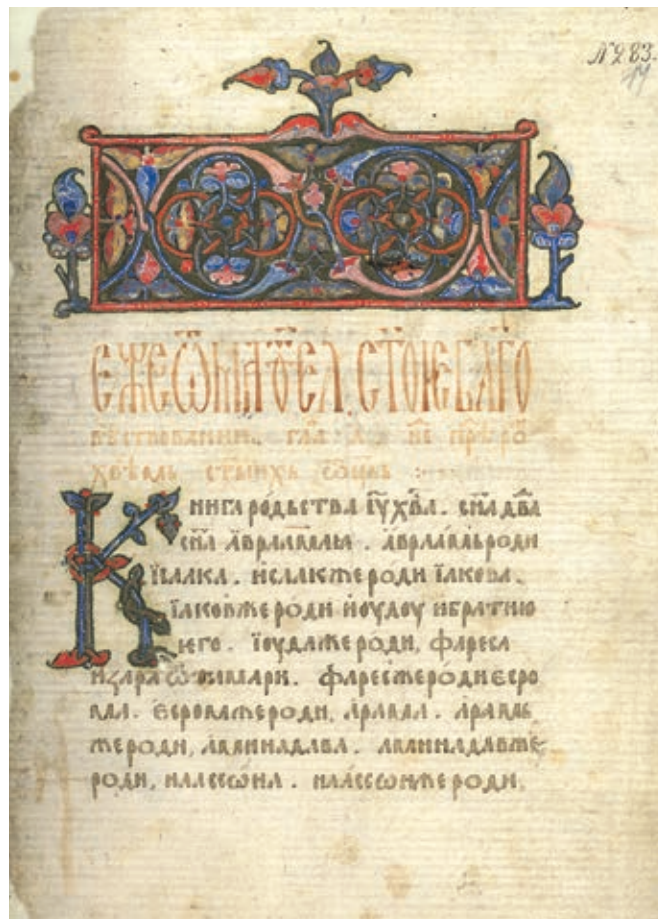 №283.
ЕЖЕ Ѿ МАѲЕꙖ. СТ҃ОЕ БЛ҃ГО
нига ро́дьства і҃ѵ х҃ва. сн҃а дв҃да
сн҃а а҆враамлꙗ. а҆враа́мь роди
І҆саака. и҆саакже роди і҆акова.
і҆аковже роди и҆оудоу и братию
ѥго. і҆оуда же ро́ди, фареса
и зара ѿ ѳамари. фаресже ро́ди есро
ма. есромже роди, арама. арамь
же роди, аминадава. аминадавже
роди, наассѡ́на. наа́ссѡнже роди,